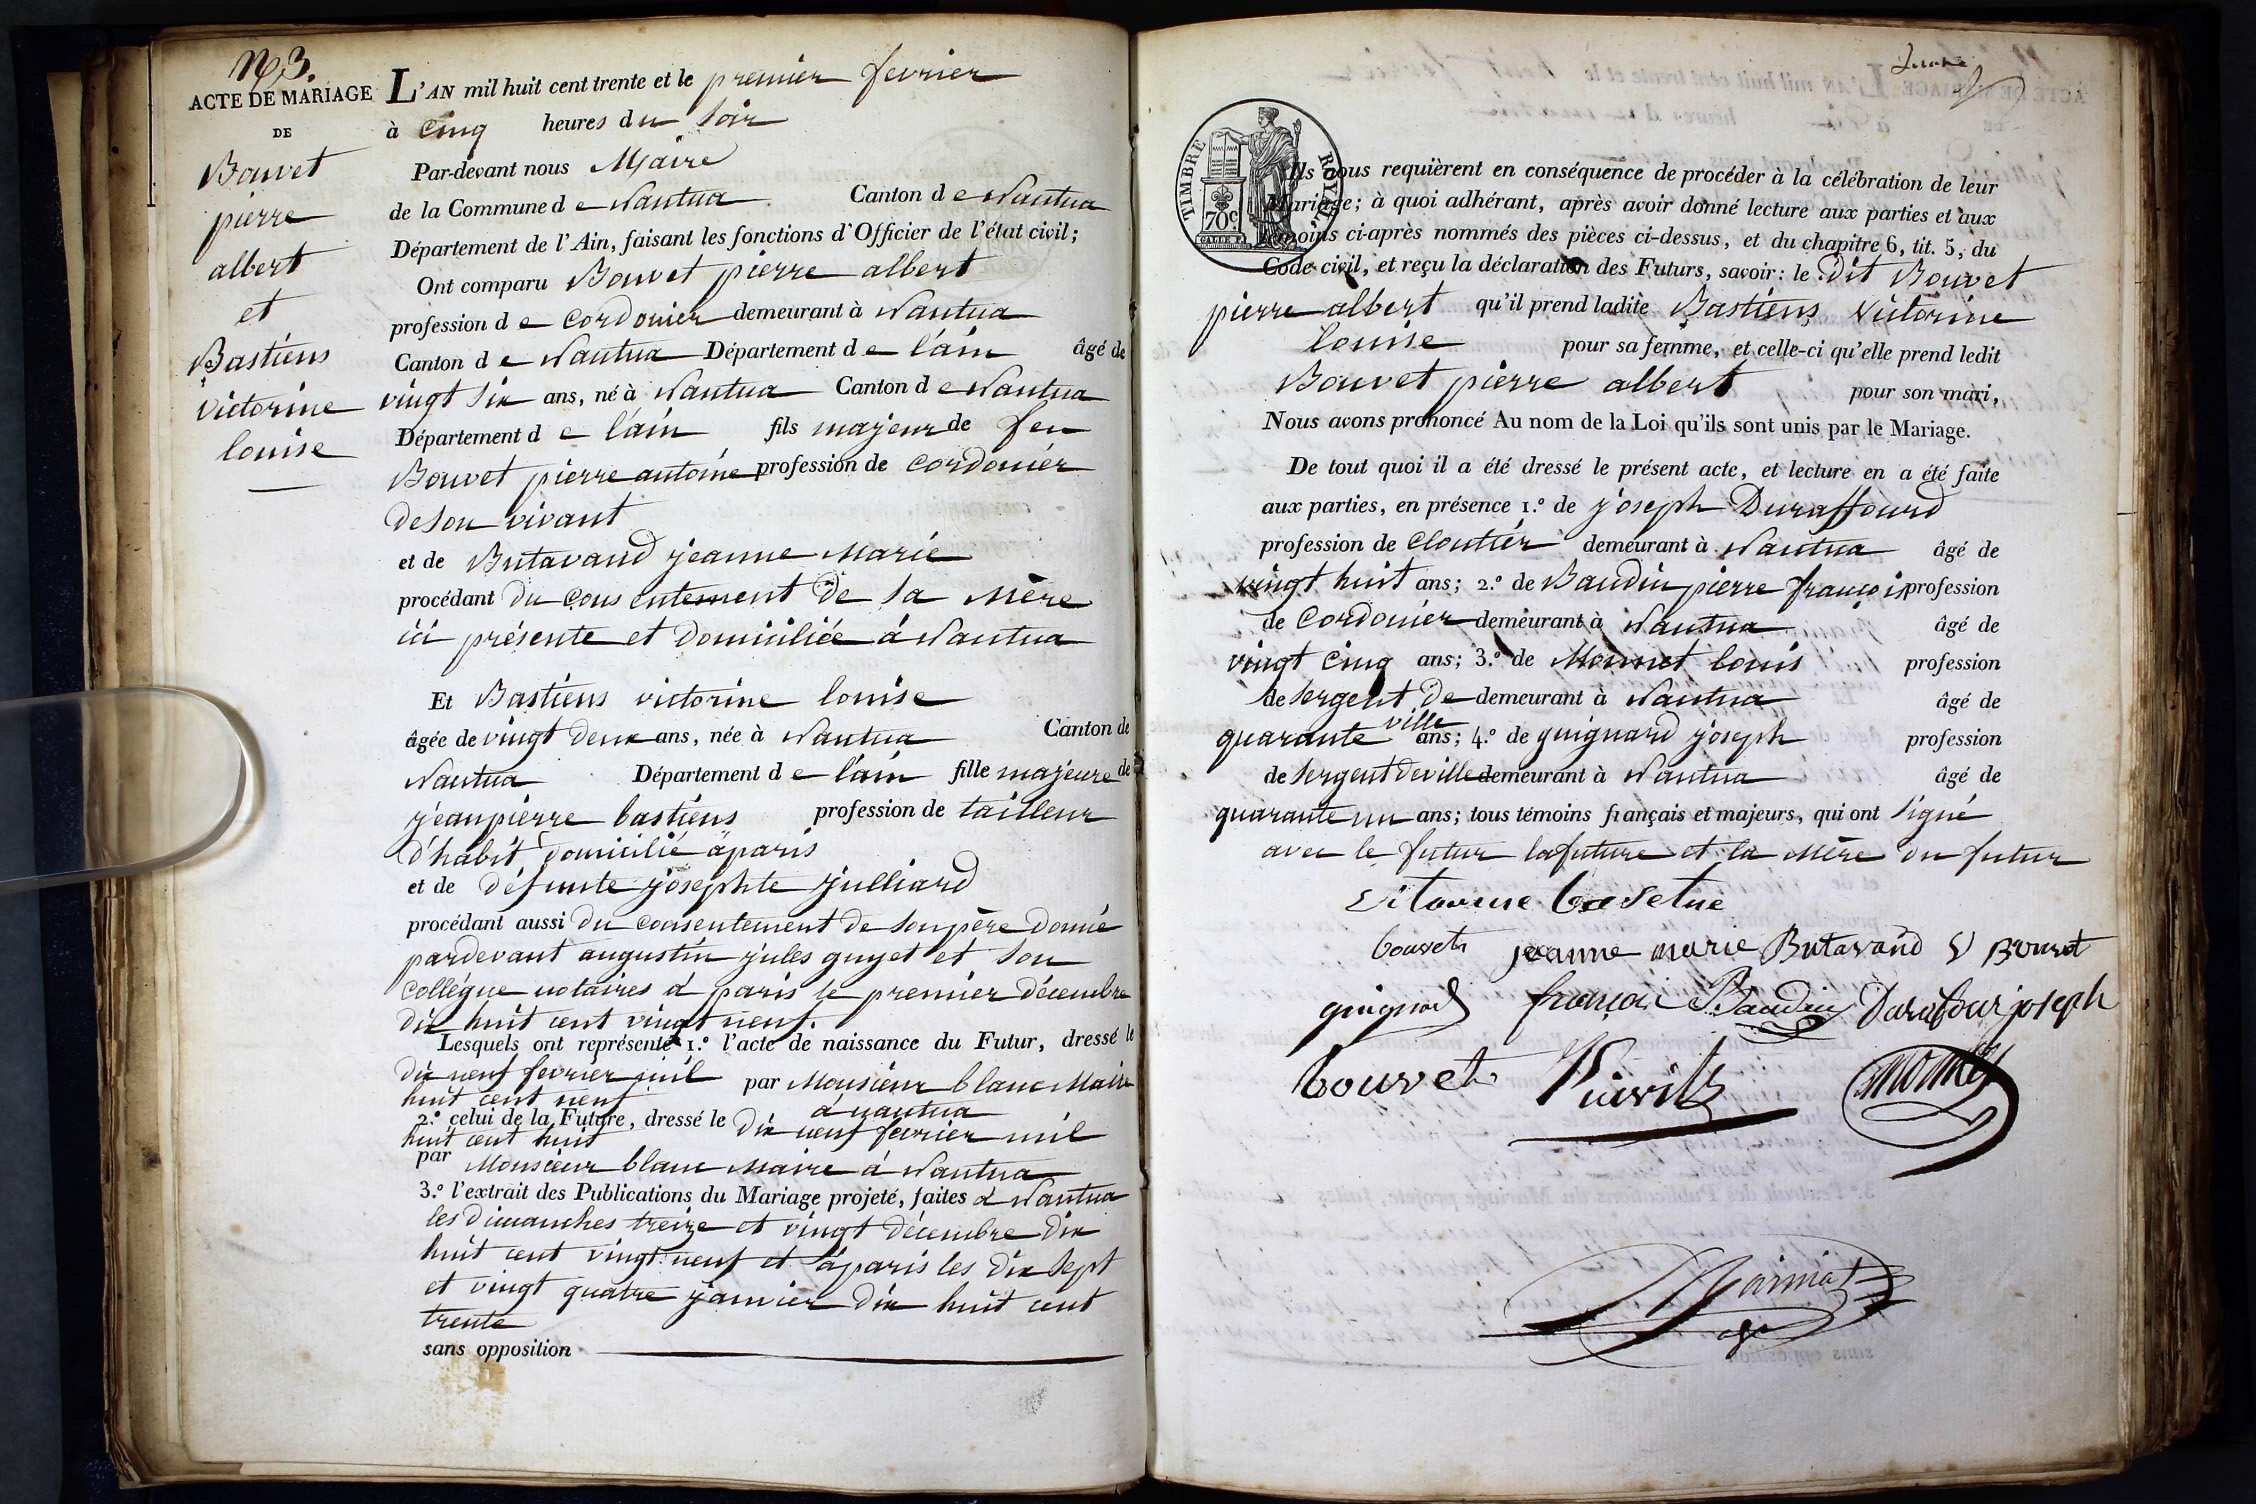 N° 3.
ACTE DE MARIAGE
DE
Bouvet
pierre
albert
et
Bastiens
victorine
louise
L'AN mil huit cent trente et le premier fevrier
à cinq heures du soir
Par-devant nous Maire
de la Commune de Nantua Canton de Nantua
Département de l'Ain, faisant les fonctions d'Officier de l'état civil;
Ont comparu Bouvet pierre albert
profession de Cordonier demeurant à Nantua
Canton de Nantua Département de l'ain âgé de
vingt six ans, né à Nantua Canton de Nantua
Département de l'ain fils majeur de feu
Bouvet pierre antoine profession de cordonier
de son vivant
et de Butavand jeanne Marie
procédant du consentement de sa Mère
ici présente et domiciliée à Nantua
Et Bastiens victorine louise
âgée de vingt deux ans, née à Nantua Canton de
Nantua Département de l'ain fille majeure de
jean pierre bastiens profession de tailleur
d'habit domicilié à paris
et de défunte josephte julliard
procédant aussi du consentement de son père donné
pardevant augustin jules guyet et son
collégue notaires à paris le premier décembre
dix huit cent vingt neuf.
Lesquels ont représenté 1.° l'acte de naissance du Futur, dressé le
dix neuf fevrier mil par Monsieur blanc Maire
huit cent neuf à nantua
2.° celui de la Future, dressé le dix neuf fevrier mil
huit cent huit
par Monsieur blanc maire à Nantua
3.° l'extrait des Publications du Mariage projeté, faites à Nantua
les dimanches treize et vingt décembre dix
huit cent vingt neuf et à paris les dix sept
et vingt quatre janvier dix huit cent
trente
sans opposition
TIMBRE ROYAL
70c
Ils nous requièrent en conséquence de procéder à la célébration de leur
Mariage; à quoi adhérant, après avoir donné lecture aux parties et aux
témoins ci-après nommés des pièces ci-dessus, et du chapitre 6, tit. 5, du
Code civil, et reçu la déclaration des Futurs, savoir: le dit Bouvet
pierre albert qu'il prend ladite Bastiens Victorine
louise pour sa femme, et celle-ci qu'elle prend ledit
Bouvet pierre albert pour son mari,
Nous avons prononcé Au nom de la Loi qu'ils sont unis par le Mariage.
De tout quoi il a été dressé le présent acte, et lecture en a été faite
aux parties, en présence 1.° de joseph Duraffourd
profession de cloutier demeurant à Nantua âgé de
vingt huit ans; 2.° de Baudin pierre françois profession
de Cordonier demeurant à Nantua âgé de
vingt cinq ans; 3.° de Monnet louis profession
de sergent de demeurant à Nantua âgé de
ville
quarante ans; 4.° de guignard joseph profession
de sergent de ville demeurant à Nantua âgé de
quarante un ans; tous témoins français et majeurs, qui ont signé
avec le futur la future et la Mère du futur
bouvet jeanne marie Butavand Bouvet
guignard françoi Baudin Durafour joseph
bouvet